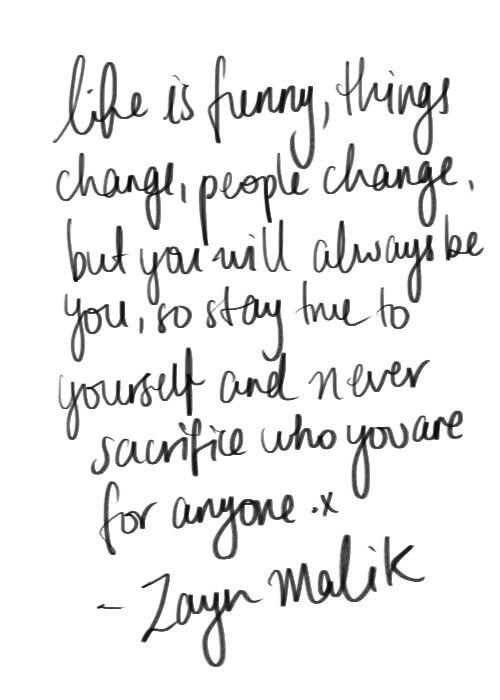 life is funny, things
change, people change,
but you will always be
you, so stay true to
yourself and never
sacrifice who you are
for anyone .x
- Zayn Malik